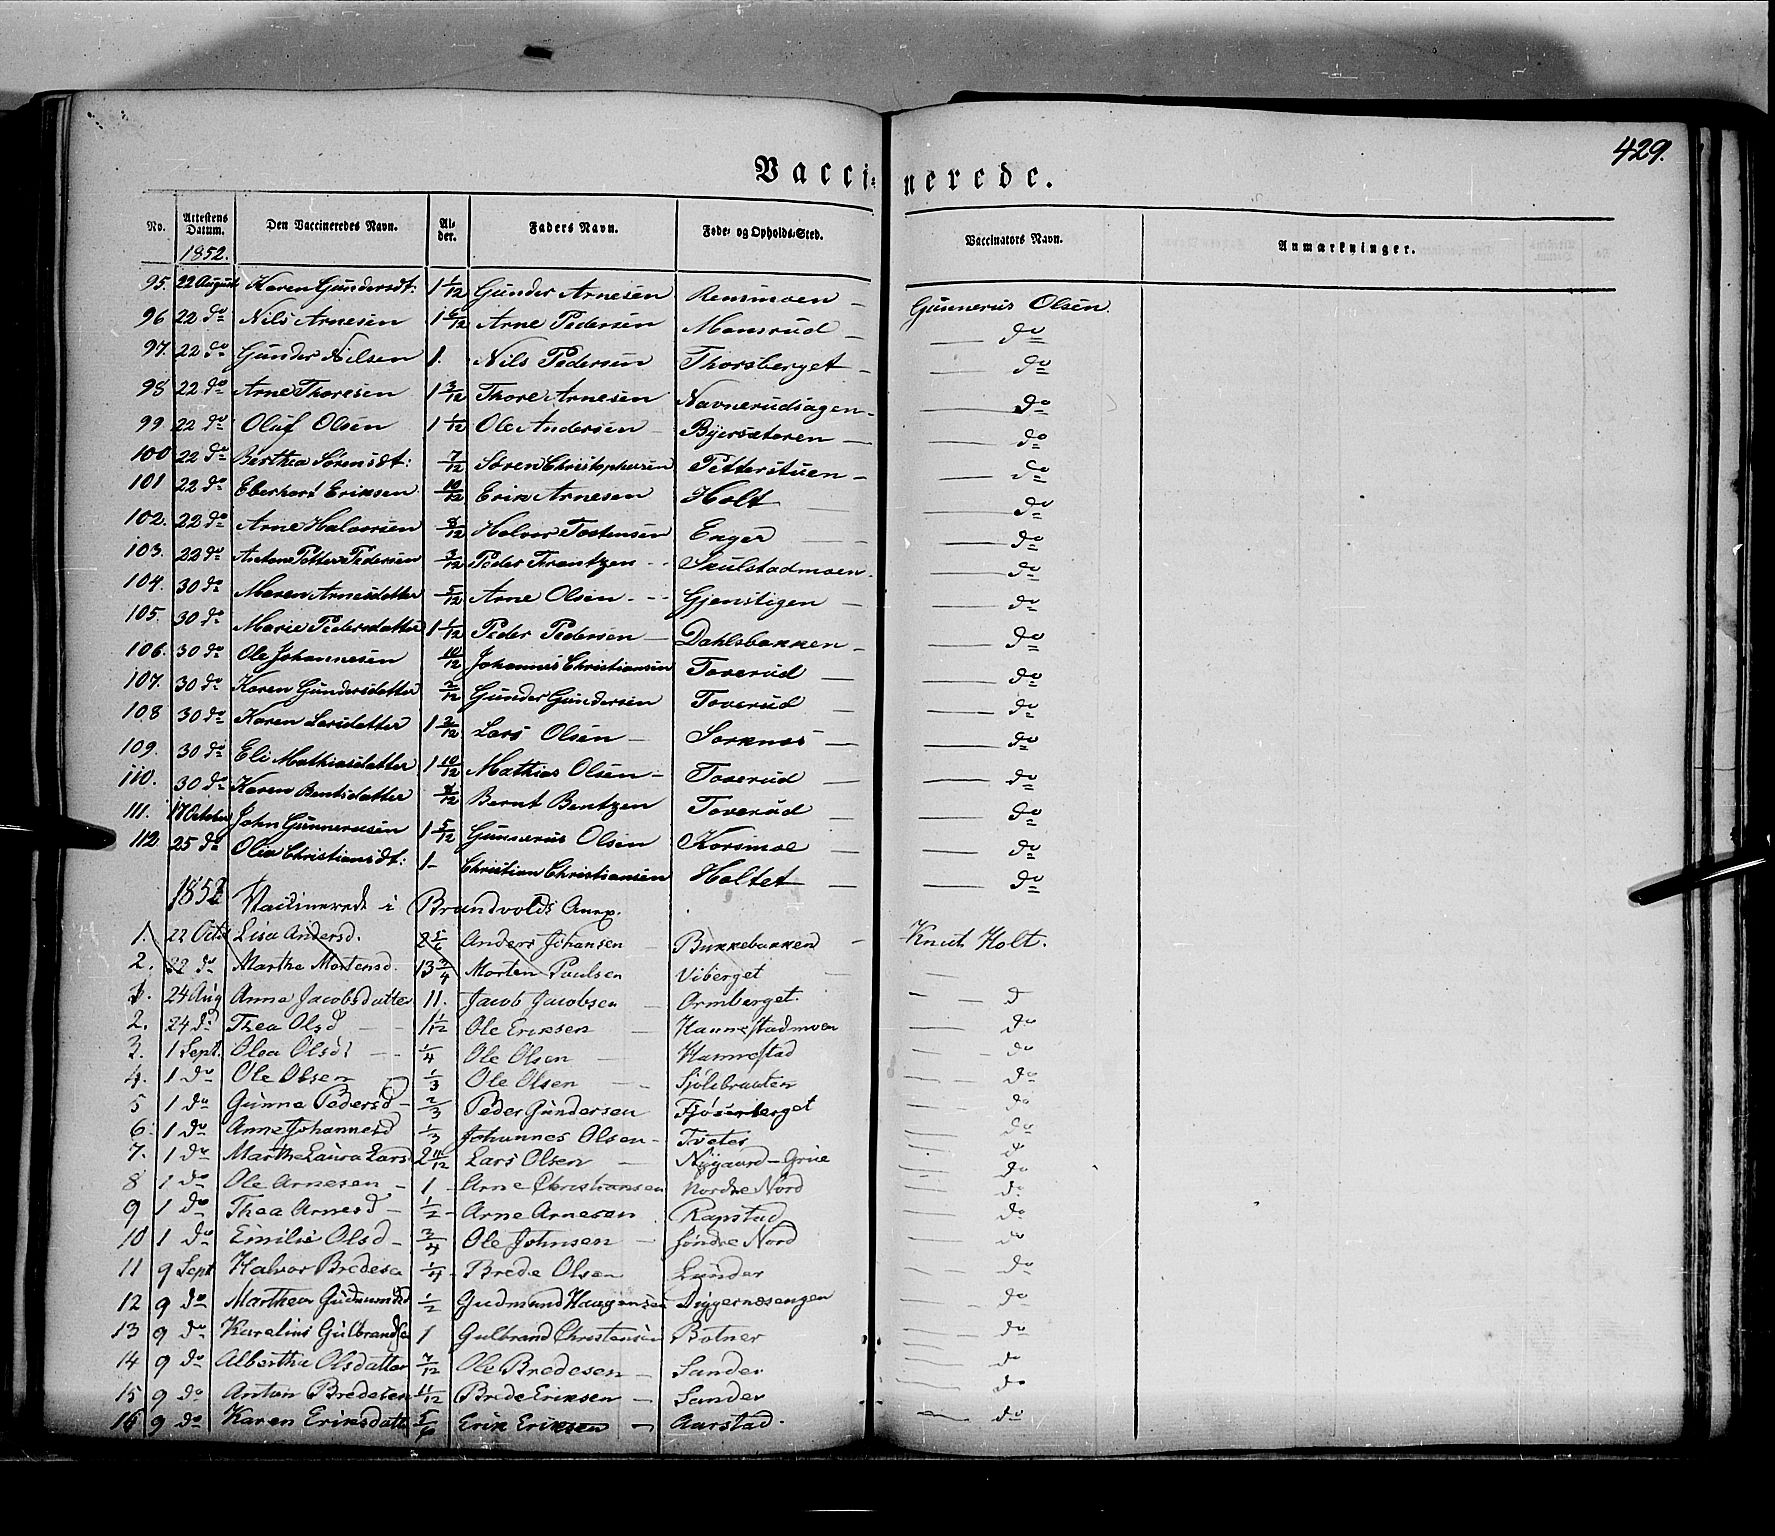 429.
Vaccinerede.
No. Attestens Datum. Den Vaccineredes Navn. Alder. Faders Navn. Føde- og Opholds-Sted. Vaccinators Navn. Anmærkninger.
1852.
95. 22 August Karen Gundersdt: 1 1/12 Gunder Arnesen Rensmoen — Gunnerus Olsen.
96 22 do Nils Arnesen 1 6/12 Arne Pedersen Monsrud — — do
97. 22 do Gunder Nilsen 1. Nils Pedersen Thorsberget — — do
98 22 do Arne Thoresen 1 3/12 Thore Arnesen Navnerudsagen — — do
99 22 do Oluf Olsen 1 1/12 Ole Andersen Byersæteren — — do
100 22 do Berthea Sørensdt: 7/12 Søren Christophersen Petterstuen — — do
101 22 do Eberhard Eriksen 10/12 Erik Arnesen Holt — — do
102. 22 do Arne Halvorsen 8/12 Halvor Tostensen Enger — — do
103. 22 do Anton Petter Pedersen 3/12 Peder Frantzen - - Skulstadmoen. — do
104. 30 do Maren Arnesdatter 5/12 Arne Olsen - - - Gjenstigen — — do
105. 30 do Marie Pedersdatter 1 1/12 Peder Pedersen — Dahlsbakken — — do
106. 30 do Ole Johannesen 10/12 Johannes Christiansen Toverud — — do
107. 30 do Karen Gundersdatter 2/12 Gunder Gundersen Toverud — — do
108 30 do Karen Larsdatter 1 2/12 Lars Olsen — Sorknes — — do
109. 30 do Eli Mathiasdatter 1 10/12 Mathias Olsen — Toverud — — do
110. 30 do Karen Berntsdatter Bernt Bentzen Toverud — — do
111. 17 October John Gunnerusen 1 5/12 Gunnerus Olsen Korsmoe — — do
112 25 do Olia Christiansdt: 1 - Christian Christiansen Holtet — — do
1852 Vaccinerede i Brandvolds Anex.
1. 22 Octo Lisa Andersd. 2 5/6 Anders Johansen — Bukkebakken — Knut Holt.
2. 22 do Marthe Mortensd. 13 3/4 Morten Paulsen Viberget — —
1. 24 Aug Anne Jacobsdatter 11. Jacob Jacobsen — Ormberget. — — d
2. 24 do Thea Olsd — — 1 1/12 Ole Eriksen — Hannestadmoen — do
3. 1 Sept. Olea Olsdt — - 1/4 Ole Olsen — Hannestad — - do
4. 1 do Ole Olsen 1/3 Ole Olsen — - Sjølibraaten — do
5 1 do Gunne Pedersd - 2/3 Peder Gundersen — do
6. 1 do Anne Johannesd 1/3 Johannes Olsen - Tveter — do
7. 1 do Marthe Laura Larsd 2 11/12 Lars Olsen — Nygaard - Grue — do
8 1 do Ole Arnesen - 1 - Arne Christiansen Nordre Nord — do
9 1 do Thea Arnesd - 1/2 - Arne Arnesen Rapstad — do
10 1 do Emilie Olsd - 3/4 Ole Johnsen - Søndre Nord — do
11 9 Sept Halvor Bredesen 1/4 - Brede Olsen Lunder — do
12 9 do Marthea Gudmundsd 1/2 Gudmund Haagensen Diggernæsengen — - do
13 9 do Karelius Gulbrandsen 1 Gulbrand Christensen Botner — — do
14 9 do Alberthe Olsdatter 7/12 Ole Bredesen - Sander — do
15 9 do Anton Bredesen 11/12 Brede Eriksen — Sander — — do
16 9 do Karen Eriksdatter 5/6 Erik Eriksen — Aarstad. — — do